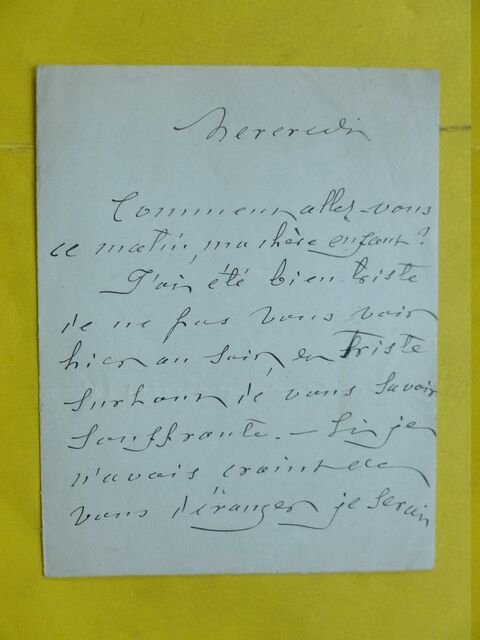 Mercredi
Comment allez-vous
ce matin, ma chère enfant?
J'ai été bien triste
de ne pas vous voir
hier au soir, et triste
surtout de vous savoir
souffrante. - Si je
n'avais craint de
vous déranger je serais